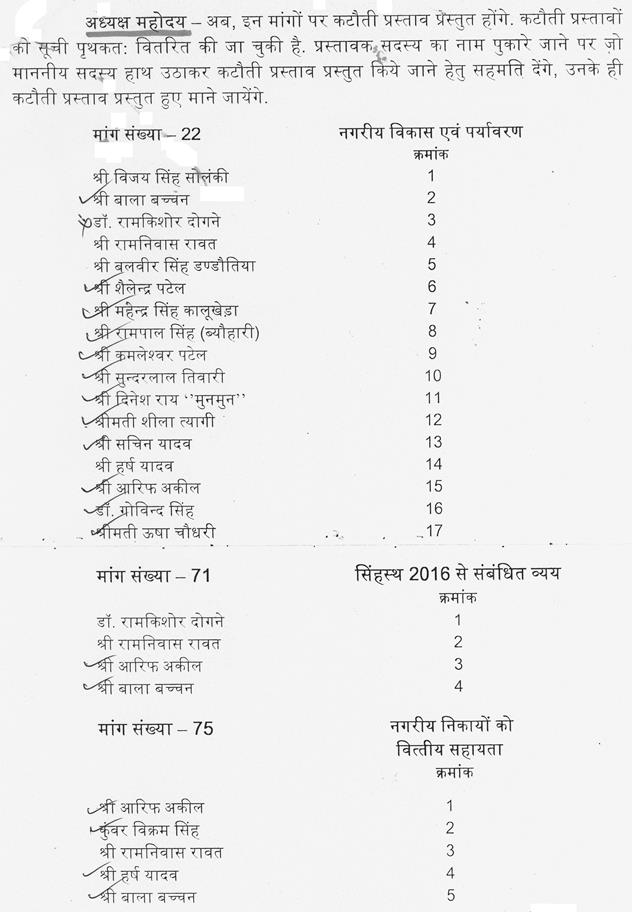 अध्यक्ष महोदय – अब, इन मांगों पर कटौती प्रस्ताव प्रस्तुत होंगे. कटौती प्रस्तावों
की सूची पृथकत: वितरित की जा चुकी है. प्रस्तावक सदस्य का नाम पुकारे जाने पर जो
माननीय सदस्य हाथ उठाकर कटौती प्रस्ताव प्रस्तुत किये जाने हेतु सहमति देंगे, उनके ही
कटौती प्रस्ताव प्रस्तुत हुए माने जायेंगे.
मांग संख्या – 22 नगरीय विकास एवं पर्यावरण
क्रमांक
श्री विजय सिंह सोलंकी 1
श्री बाला बच्चन 2
डॉ. रामकिशोर दोगने 3
श्री रामनिवास रावत 4
श्री बलवीर सिंह डण्डौतिया 5
श्री शैलेन्द्र पटेल 6
श्री महेन्द्र सिंह कालूखेड़ा 7
श्री रामपाल सिंह (ब्यौहारी) 8
श्री कमलेश्वर पटेल 9
श्री सुन्दरलाल तिवारी 10
श्री दिनेश राय ‘‘मुनमुन’’ 11
श्रीमती शीला त्यागी 12
श्री सचिन यादव 13
श्री हर्ष यादव 14
श्री आरिफ अकील 15
डॉ. गोविन्द सिंह 16
श्रीमती ऊषा चौधरी 17
मांग संख्या – 71 सिंहस्थ 2016 से संबंधित व्यय
क्रमांक
डॉ. रामकिशोर दोगने 1
श्री रामनिवास रावत 2
श्री आरिफ अकील 3
श्री बाला बच्चन 4
मांग संख्या – 75 नगरीय निकायों को
वित्तीय सहायता
क्रमांक
श्री आरिफ अकील 1
कुंवर विक्रम सिंह 2
श्री रामनिवास रावत 3
श्री हर्ष यादव 4
श्री बाला बच्चन 5